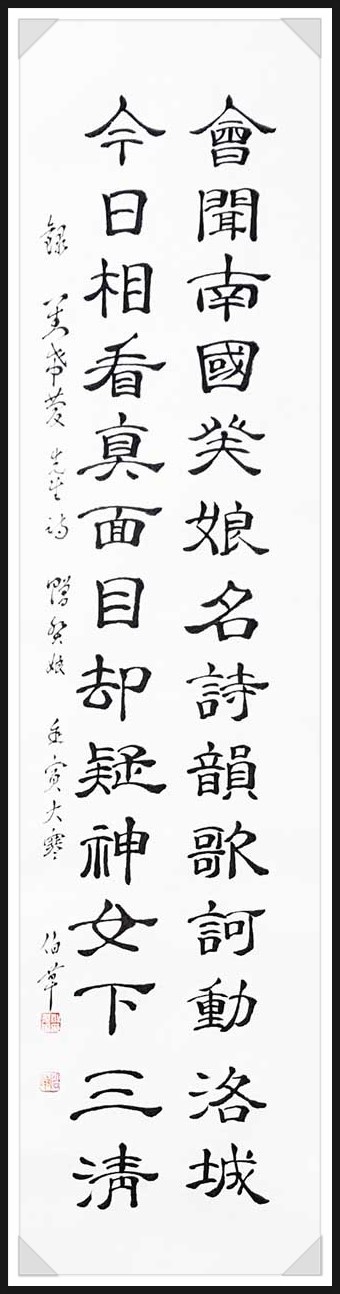 會聞南國癸娘名詩韻歌訶動洛城
今日相看真面目却疑神女下三清
錄 先生詩 贈癸娘 壬寅大寒 伯草